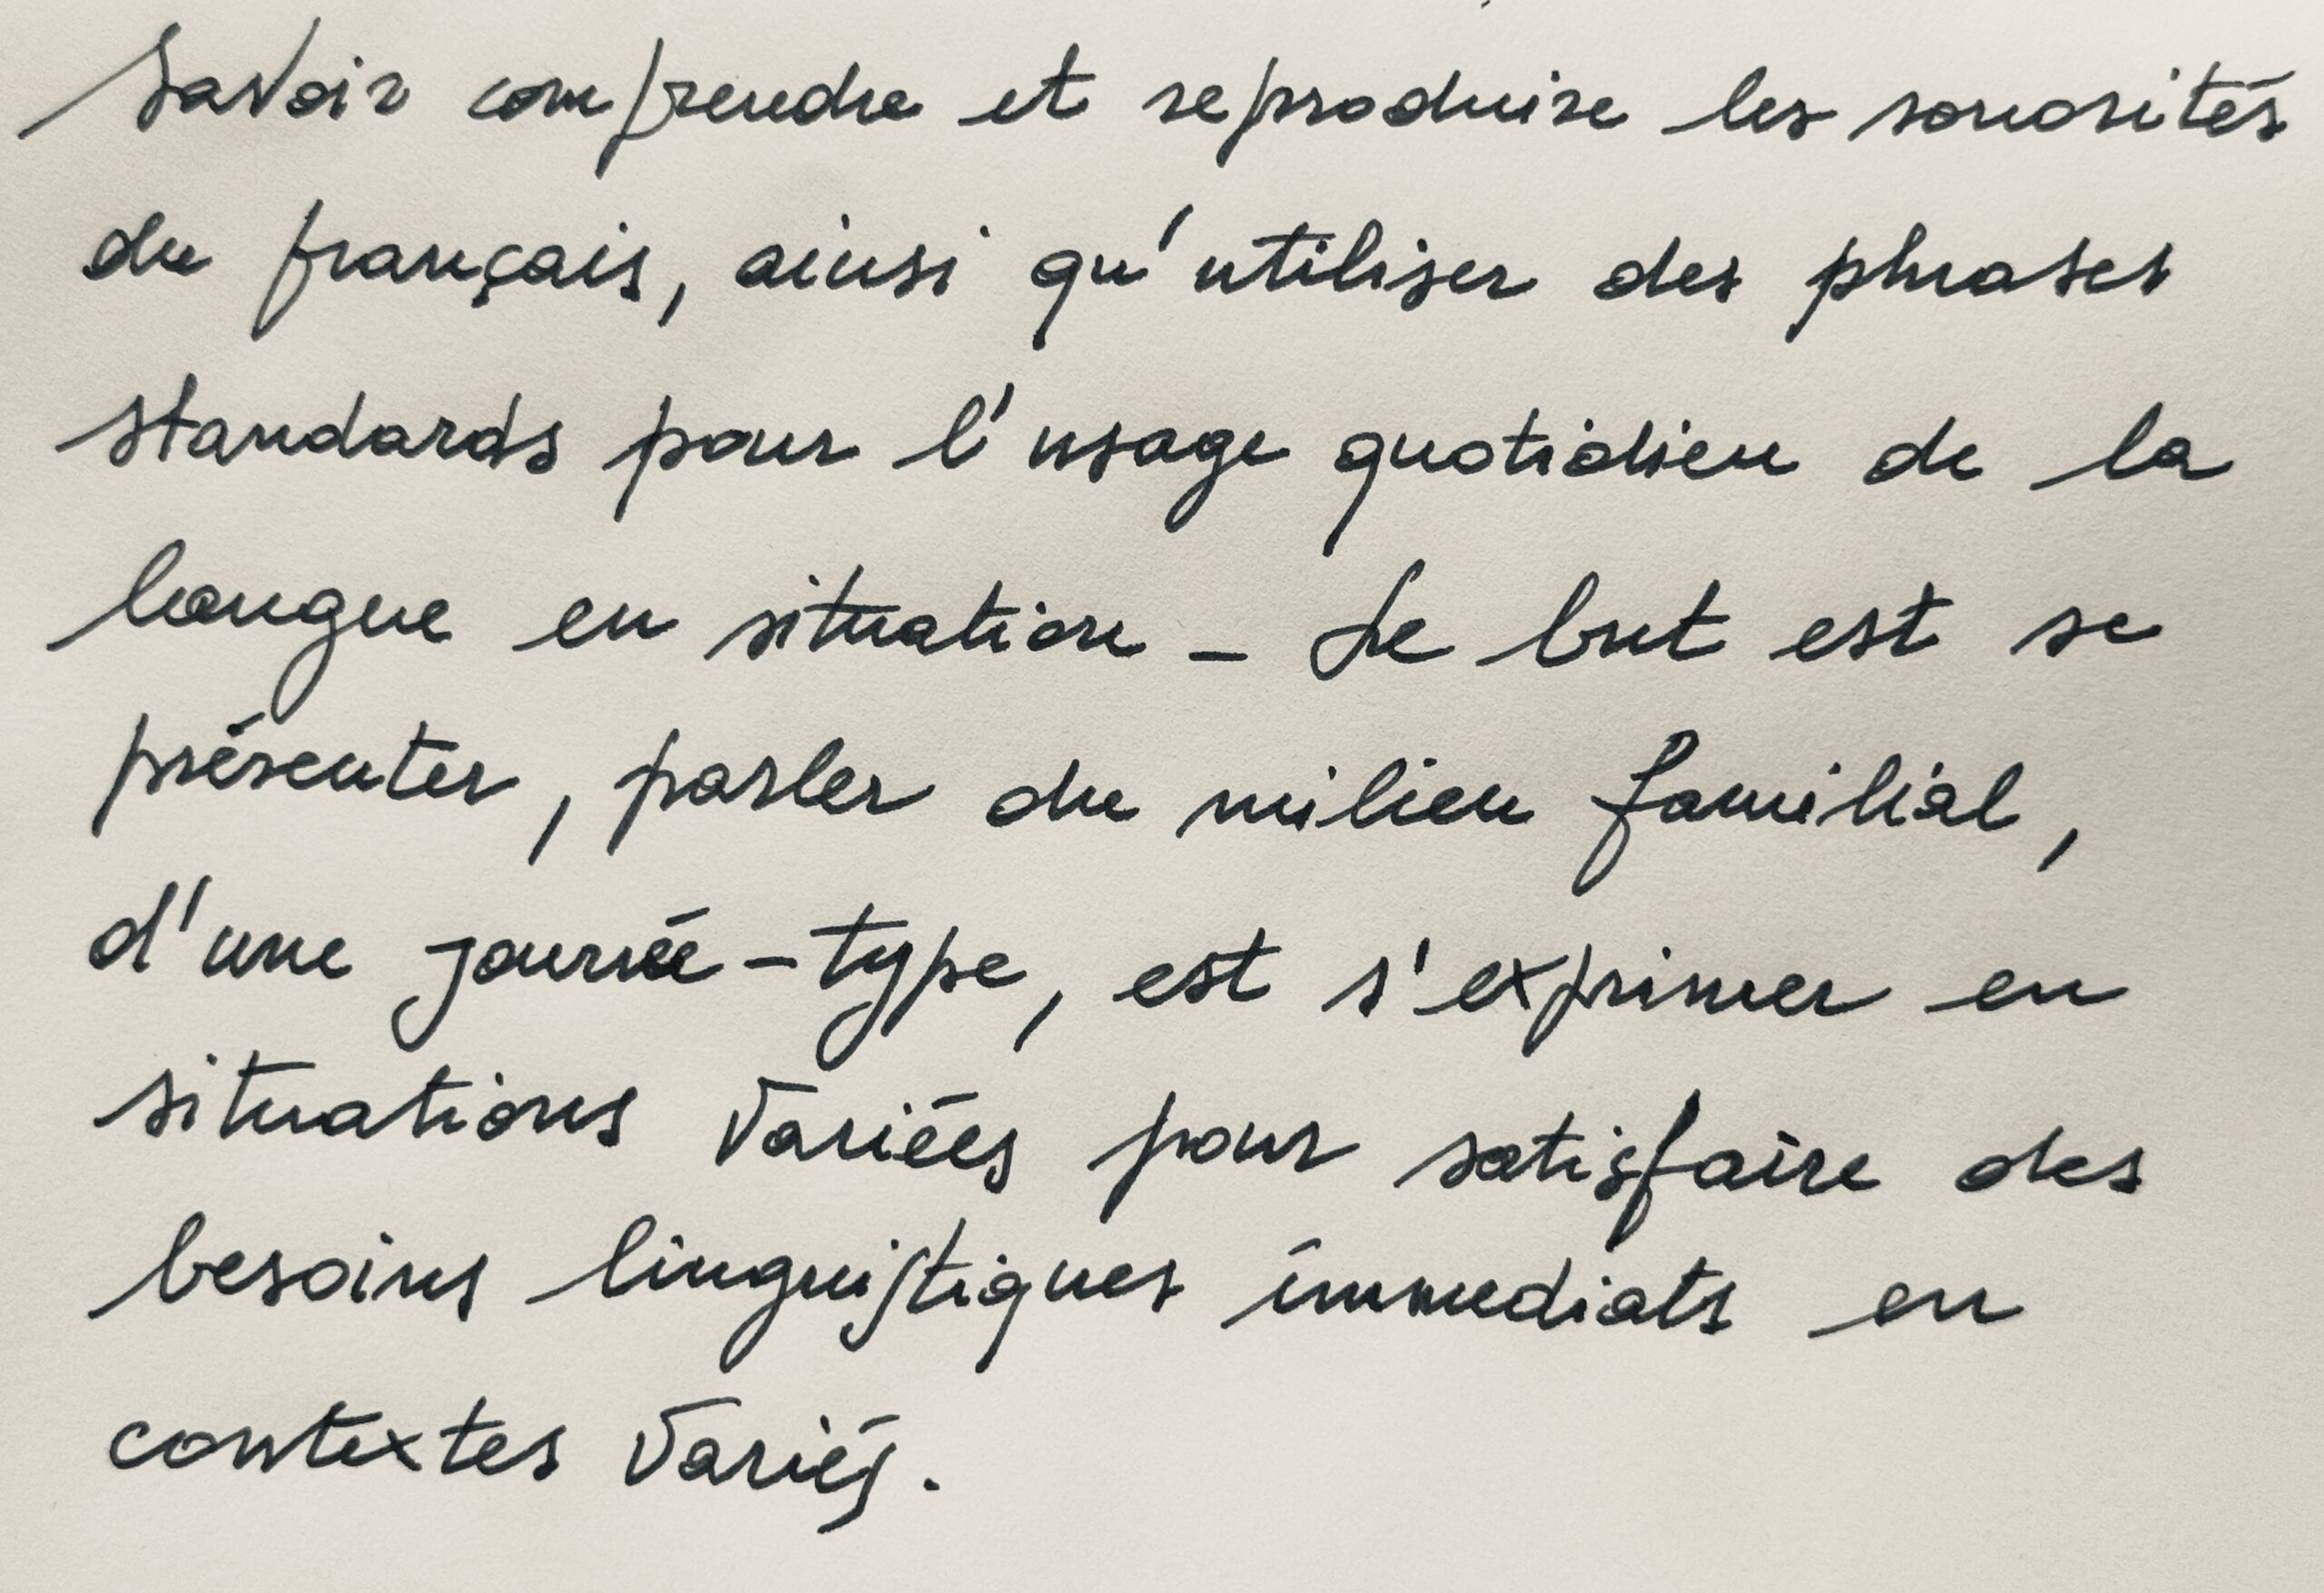 Savoir comprendre et reproduire les sonorités
du français, ainsi qu'utiliser des phrases
standards pour l'usage quotidien de la
langue en situation - Le but est se
présenter, parler du milieu familial,
d'une journée-type, est s'exprimer en
situations variées pour satisfaire des
besoins linguistiques immediats en
contextes variés.